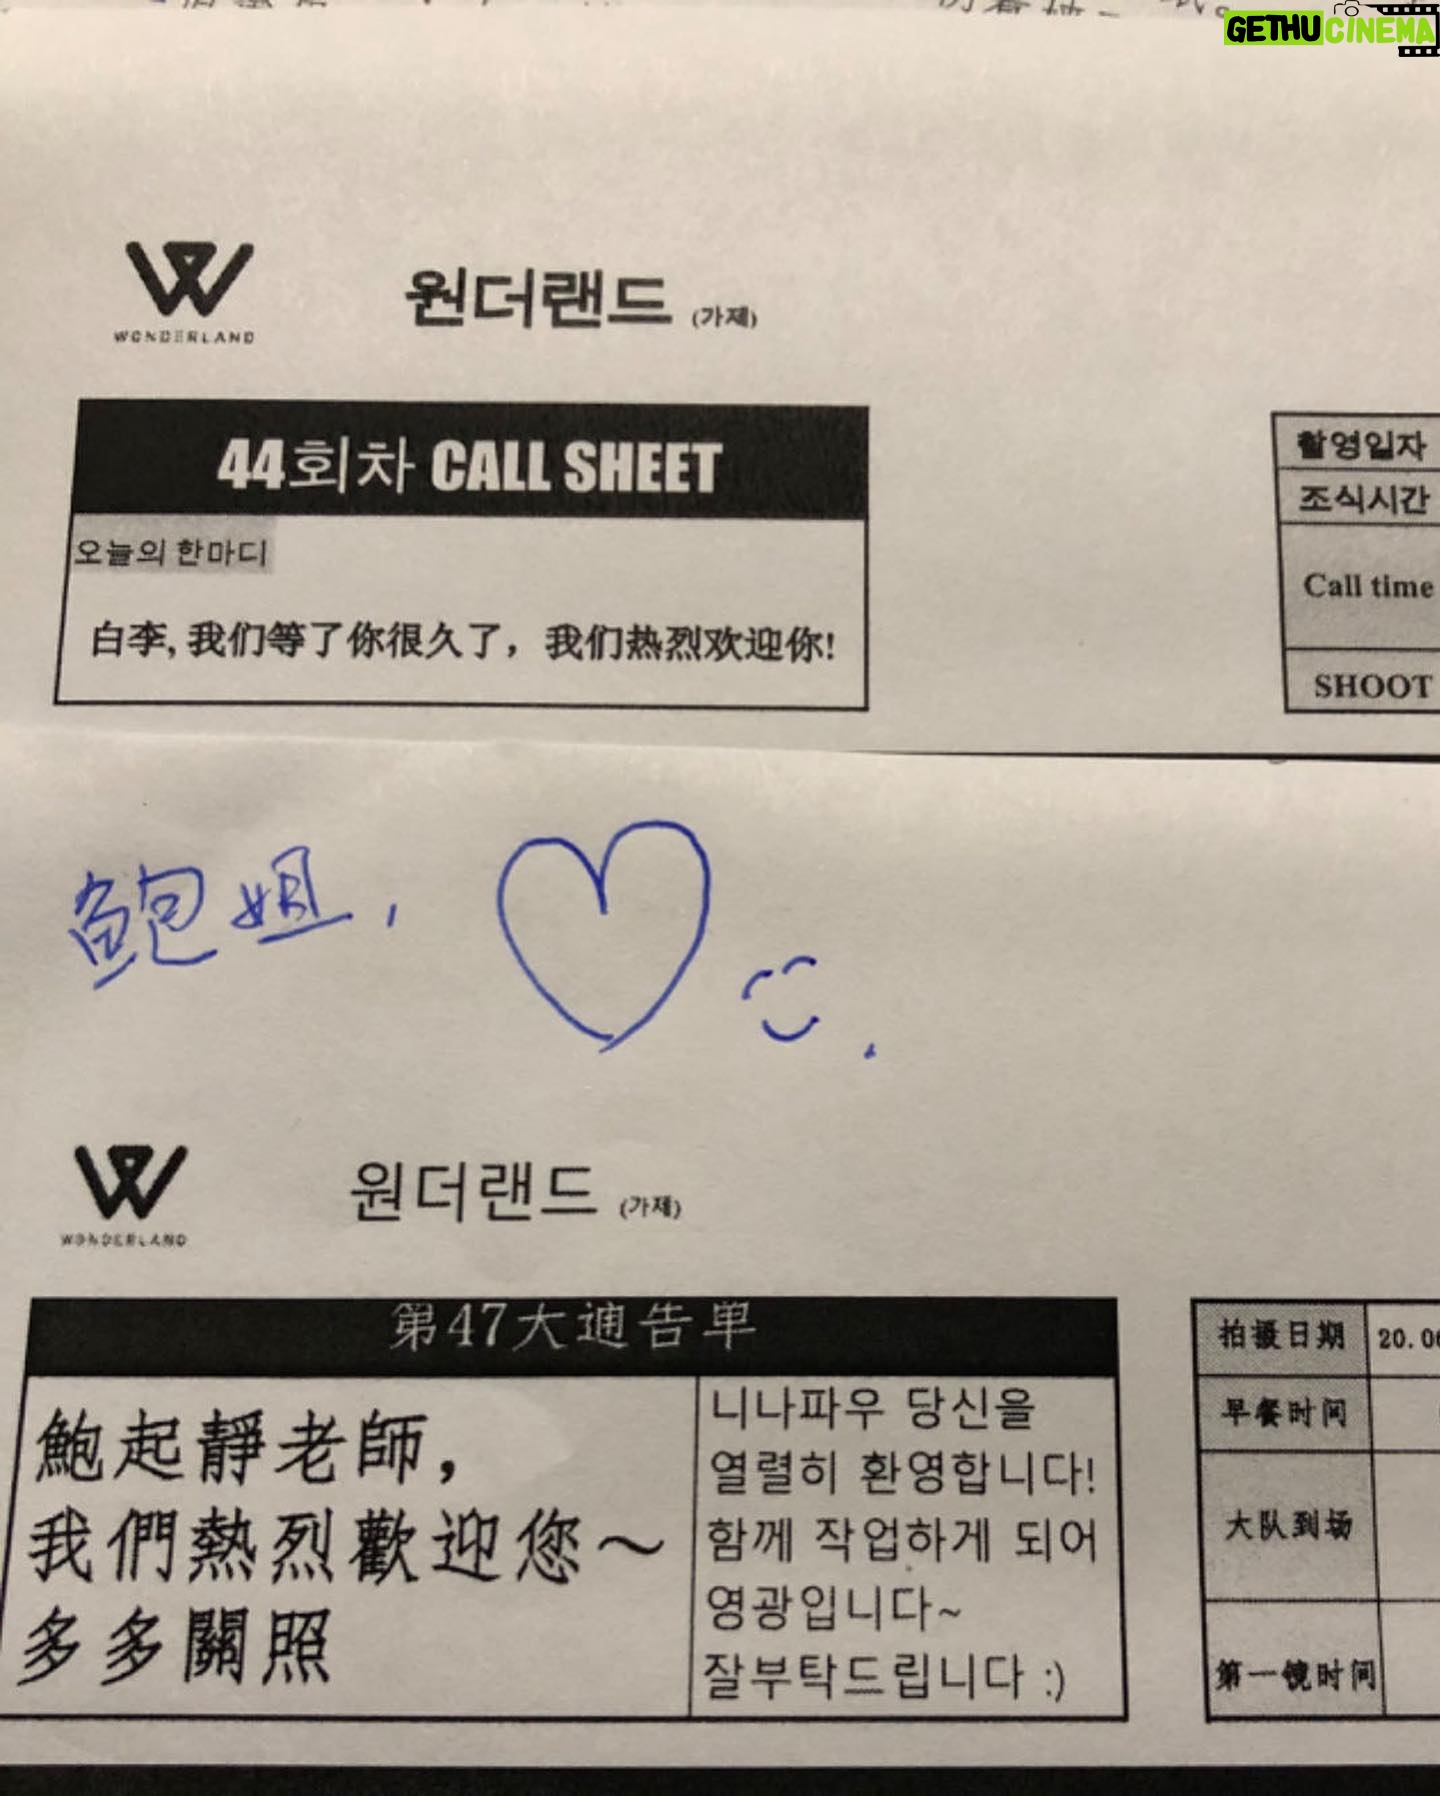 GETHUCINEMA
WONDERLAND
원더랜드 (가제)
44회차 CALL SHEET
오늘의 한마디
白李, 我们等了你很久了，我们热烈欢迎你!
촬영일자
조식시간
Call time
SHOOT
鮑姐，
WONDERLAND
원더랜드 (가제)
第47大通告单
鮑起靜老師，
我們熱烈歡迎您～
多多關照
니나파우 당신을
열렬히 환영합니다!
함께 작업하게 되어
영광입니다~
잘부탁드립니다 :)
拍摄日期 20.06
早餐时间
大队到场
第一镜时间